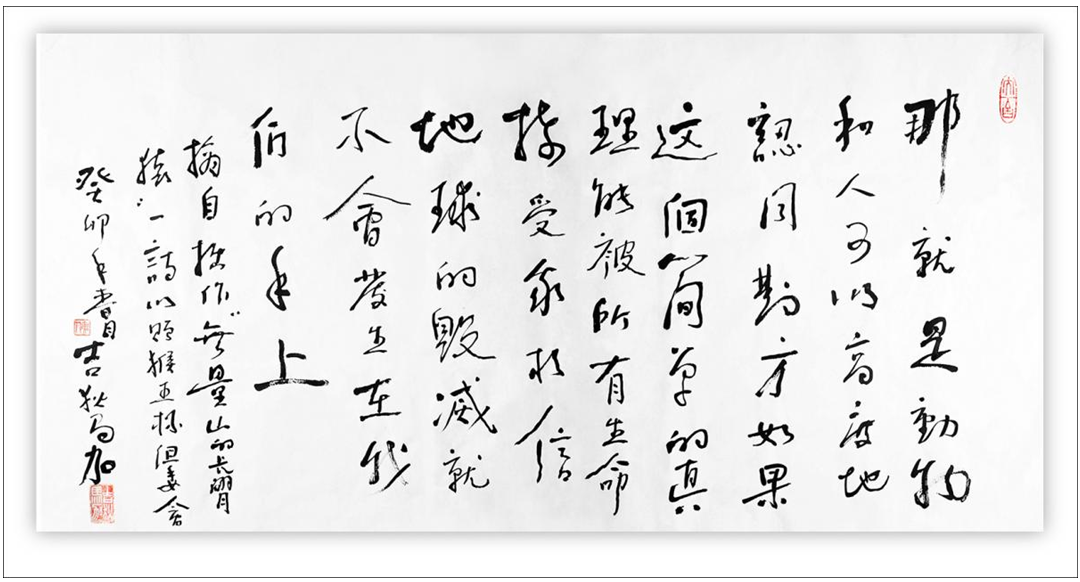 那就是動物
和人可以高度地
認同對方如果
这個簡單的真
理能被所有生命
接受我相信
地球的毀滅就
不會發生在我
们的手上
摘自拙作“無量山的长臂
猿”一詩以贈猴王杯组委會
癸卯年春月吉狄馬加